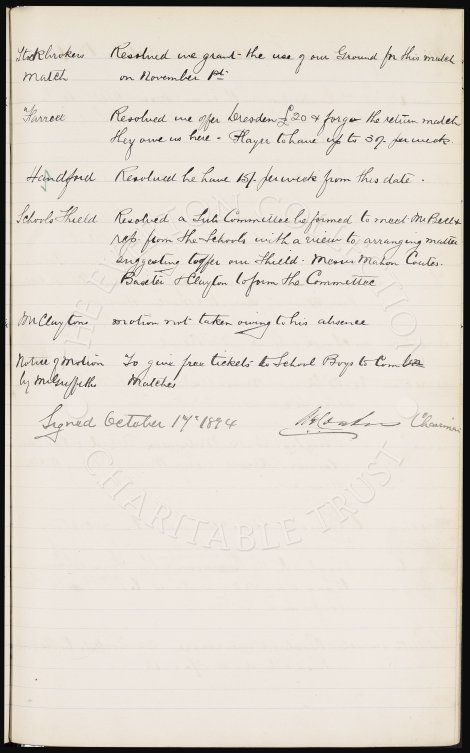 Stockbrokers Resolved we grant the use of our Ground for this match
Match on November 1st
Farrell Resolved we offer Dresden £20 & forgo the return match
they owe us here - Player to have up to 30/ per week
Handford Resolved he have 15/ per week from this date.
Schools Shield Resolved a Sub Committee be formed to meet Mr Bell &
rep. from the Schools with a view to arranging matters
suggesting to offer our Shield. Messrs Mahon Coates.
Baxter & Clayton to form the Committee
Mr Claytons motion not taken owing to his absence
Notice of Motion To give free tickets to School Boys to Combn
by Mr Griffiths Matches
Signed October 17th 1894 Chairman
THE EVERTON COLLECTION
CHARITABLE TRUST